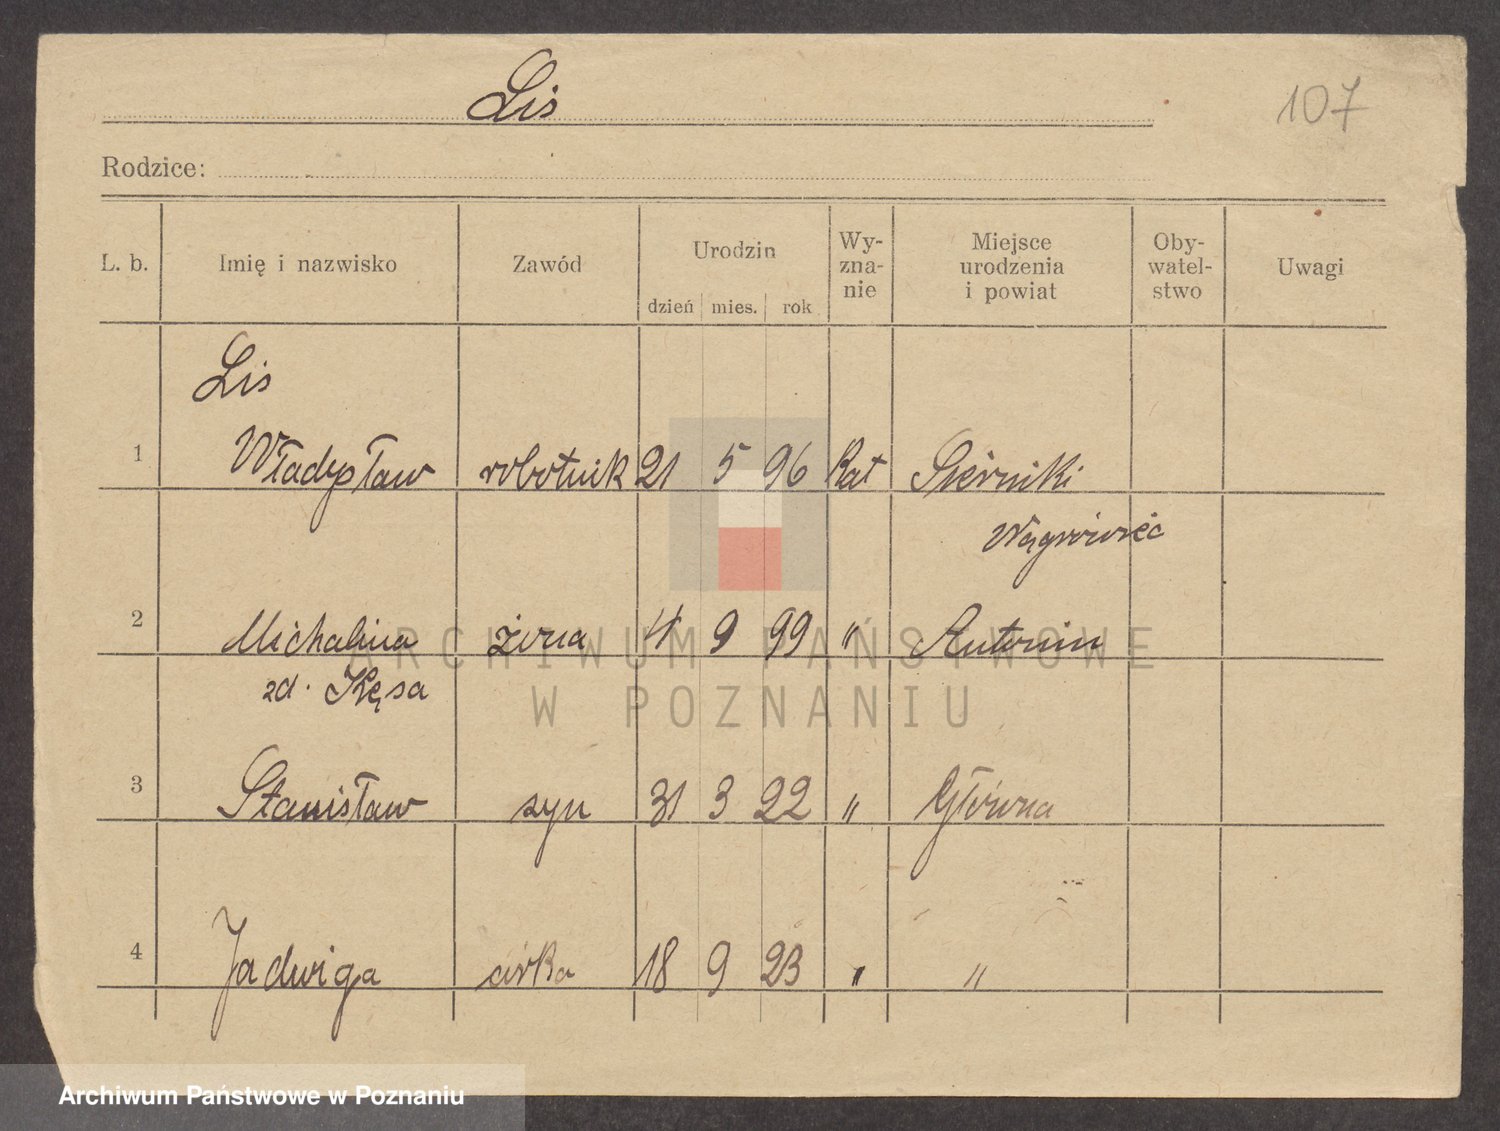 Lis
107
Rodzice:
L. b. Imię i nazwisko Zawód Urodzin Wy- zna- nie Miejsce urodzenia i powiat Oby- watel- stwo Uwagi
dzień mies. rok
Lis
1 Władysław robotnik 21 5 96 Kat Sierniki
Wągrówiec
2 Michalina żona 4 9 99 " Antonin
zd. Kęsa
3 Stanisław syn 31 3 22 " Główna
4 Jadwiga córka 18 9 23 " "
ARCHIWUM PAŃSTWOWE
W POZNANIU
Archiwum Państwowe w Poznaniu